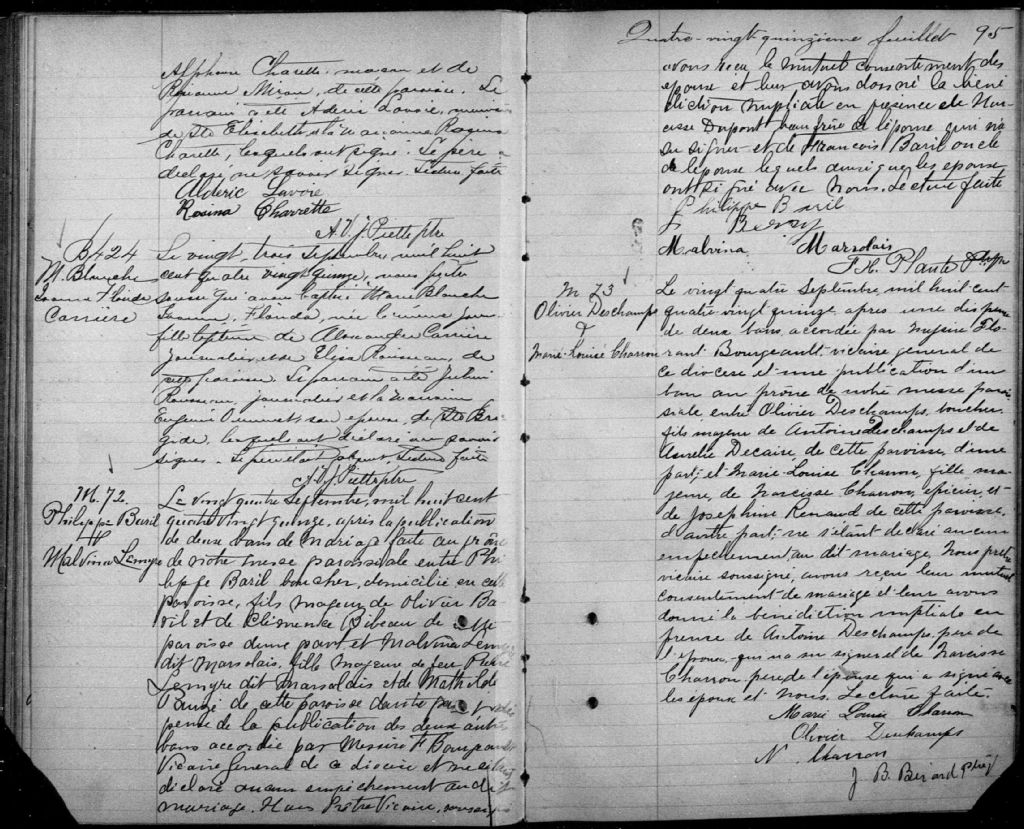 Alphonse Charette, maçon et de
Rosanna Miron, de cette paroisse. Le
parrain a été Aderic Lavoie,
de Ste Elisabeth et la marraine Rosina
Charette, lesquels ont signé. Le père a
déclaré ne savoir signer. Lecture faite
Alderic Lavore
Rosina Charrette
A. V. J. Piette ptre
B424
M. Blanche
Flouda
Carrière
Le vingt trois septembre, mil huit
cent quatre vingt quinze, nous prêtre
soussigné avons baptisé Marie Blanche
Flouda, née le même jour
fille légitime de Alexandre Carrière
journalier, et de Eliza Rousseau, de
cette paroisse. Le parrain a été Julien
Rousseau, journalier et la marraine
Eugénie Ouimet, son épouse, de Ste Bri-
gide, lesquels ont déclaré ne savoir
signer. Le père était absent. Lecture faite
A. V. J. Piette ptre
M. 72.
Philippe Baril
&
Malvina Lemyre
Le vingt quatre Septembre, mil huit cent
quatre vingt quinze, après la publication
de deux bans de mariage faite au prône
de notre messe paroissiale entre Phi
lippe Baril boucher, domicilié en cette
paroisse, fils majeur de Olivier Ba
ril et de Clémence Bibeau de cette
paroisse d'une part et Malvina Lemyre
dit Marsolais, fille majeure de feu Pierre
Lemyre dit Marsolais et de Mathilde
de cette paroisse d'autre part
pense de la publication des deux autres
bans accordée par Messire F. Bourgeault
Vicaire General de ce diocèse et
déclaré aucun empêchement au dit
mariage. Nous Prêtre Vicaire, soussigné
Quatre-vingt-quinzième feuillet 95
avons reçu le mutuel consentement des
epoux et leur avons donné la béné
diction nuptiale en présence de Nar
cisse Dupont beau frère de l'épouse qui n'a
su signer et de François Baril oncle
de l'épouse lequels ainsi que les epoux
ont signé avec Nous. Lecture faite
Philippe Baril
F Baril
Malvina Marsolais
F. X. Plante Ptre
M 73
Olivier Deschamps
&
Marie-Louise Charron
Le vingt quatre Septembre, mil huit cent
quatre vingt quinze après une dispense
de deux bans accordée par Messire Flo-
rant Bourgeault, vicaire général de
ce diocese et une publication d'un
ban au prône de notre messe parois
siale entre Olivier Deschamps, boucher,
fils majeur de Antoine Deschamps et de
Aurélie Decaire, de cette paroisse, d'une
part; et Marie Louise Charron, fille ma-
jeure, de Narcisse Charron, épicier, et
de Josephine Renaud de cette paroisse,
d'autre part; ne s'étant declaré aucun
empêchement au dit mariage, Nous prêtre
vicaire soussigné, avons reçu leur mutuel
consentement de mariage et leur avons
donné la bénédiction nuptiale en
présence de Antoine Deschamps, père de
l'epoux, qui n'a su signer et de Narcisse
Charron, père de l'épouse qui a signé avec
les époux et Nous. Lecture faite.
Marie Louise Charron
Olivier Deschamps
N Charron
J. B. Berard Ptre